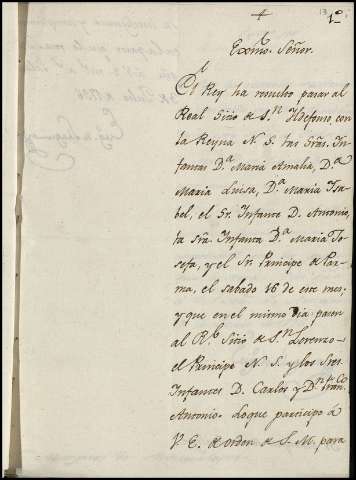 13
1º
+
Exmo. Señor.
El Rey ha resuelto pasar al
Real Sitio de Sn. Ildefonso, con
la Reyna N. S. las Sras. In-
fantas Dª Maria Amalia, Dª
Maria Luisa, Dª Maria Isa-
bel, el Sr. Infante D. Antonio,
la Sra. Infanta Dª Maria Jo-
sefa, y el Sr. Principe de Par-
ma, el sabado 16 de este mes,
y que en el mismo Dia pasen
al Rl. Sitio de Sn. Lorenzo
el Principe N. S. y los Sres.
Infantes D. Carlos y Dn. Franco.
Antonio. Lo que participo á
V. E. de orden de S. M. para